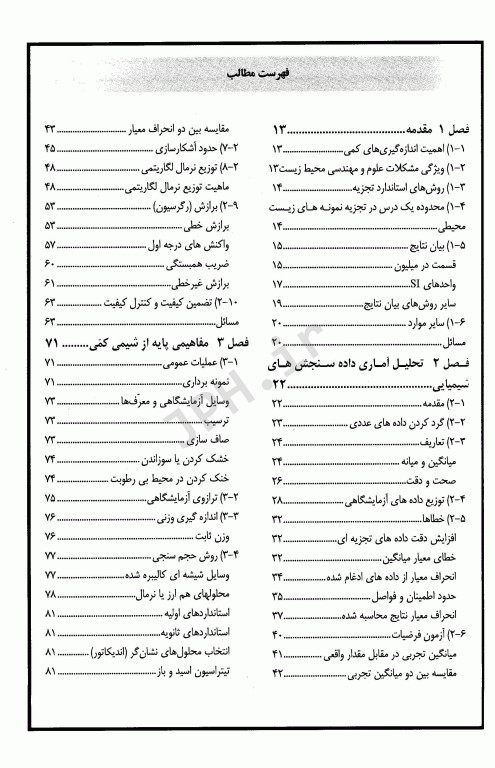 فهرست مطالب
فصل ۱ مقدمه......................................۱۳
۱-۱) اهمیت اندازه‌گیری‌های کمی......................۱۳
۱-۲) ویژگی مشکلات علوم و مهندسی محیط زیست۱۳
۱-۳) روش‌های استاندارد تجزیه......................۱۴
۱-۴) محدوده یک درس در تجزیه نمونه های زیست
محیطی......................۱۴
۱-۵) بیان نتایج......................۱۵
قسمت در میلیون......................۱۵
واحدهای SI......................۱۷
سایر روش‌های بیان نتایج......................۱۹
۱-۶) سایر موارد......................۲۰
مسائل......................۲۰
فصل ۲ تحلیل آماری داده سنجش های
شیمیایی......................۲۲
۲-۱) مقدمه......................۲۲
۲-۲) گرد کردن داده های عددی......................۲۳
۲-۳) تعاریف......................۲۴
میانگین و میانه......................۲۴
صحت و دقت......................۲۶
۲-۴) توزیع داده های آزمایشگاهی......................۲۸
۲-۵) خطاها......................۳۲
افزایش دقت داده های تجزیه ای......................۳۲
خطای معیار میانگین......................۳۲
انحراف معیار از داده های ادغام شده......................۳۴
حدود اطمینان و فواصل......................۳۵
انحراف معیار نتایج محاسبه شده......................۳۷
۲-۶) آزمون فرضیات......................۴۰
میانگین تجربی در مقابل مقدار واقعی......................۴۱
مقایسه بین دو میانگین تجربی......................۴۲
مقایسه بین دو انحراف معیار......................۴۳
۲-۷) حدود آشکارسازی......................۴۵
۲-۸) توزیع نرمال لگاریتمی......................۴۸
ماهیت توزیع نرمال لگاریتمی......................۴۸
۲-۹) برازش (رگرسیون)......................۵۳
برازش خطی......................۵۳
واکنش های درجه اول......................۵۷
ضریب همبستگی......................۶۰
برازش غیرخطی......................۶۱
۲-۱۰) تضمین کیفیت و کنترل کیفیت......................۶۳
مسائل......................۶۳
فصل ۳ مفاهیمی پایه از شیمی کمّی.........۷۱
۳-۱) عملیات عمومی......................۷۱
نمونه برداری......................۷۱
وسایل آزمایشگاهی و معرّف‌ها......................۷۳
ترسیب......................۷۳
صاف سازی......................۷۳
خشک کردن یا سوزاندن......................۷۴
خنک کردن در محیط بی رطوبت......................۷۴
۳-۲) ترازوی آزمایشگاهی......................۷۵
۳-۳) اندازه گیری وزنی......................۷۶
وزن ثابت......................۷۶
۳-۴) روش حجم سنجی......................۷۷
وسایل شیشه ای کالیبره شده......................۷۷
محلولهای هم ارز یا نرمال......................۷۸
استانداردهای اولیه......................۸۱
استانداردهای ثانویه......................۸۱
انتخاب محلول‌های نشان‌گر (اندیکاتور)......................۸۱
تیتراسیون اسید و باز......................۸۱
JPH.ir